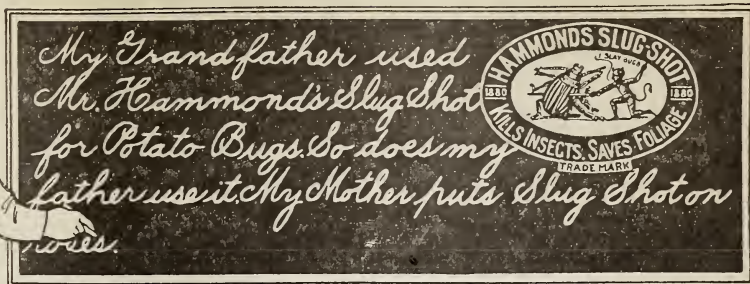 My Grandfather used
Mr. Hammond's Slug Shot
for Potato Bugs. So does my
father use it. My Mother puts Slug Shot on
roses.
HAMMONDS SLUG-SHOT
I SLAY BUGS
1880 1880
KILLS INSECTS. SAVES FOLIAGE
TRADE MARK